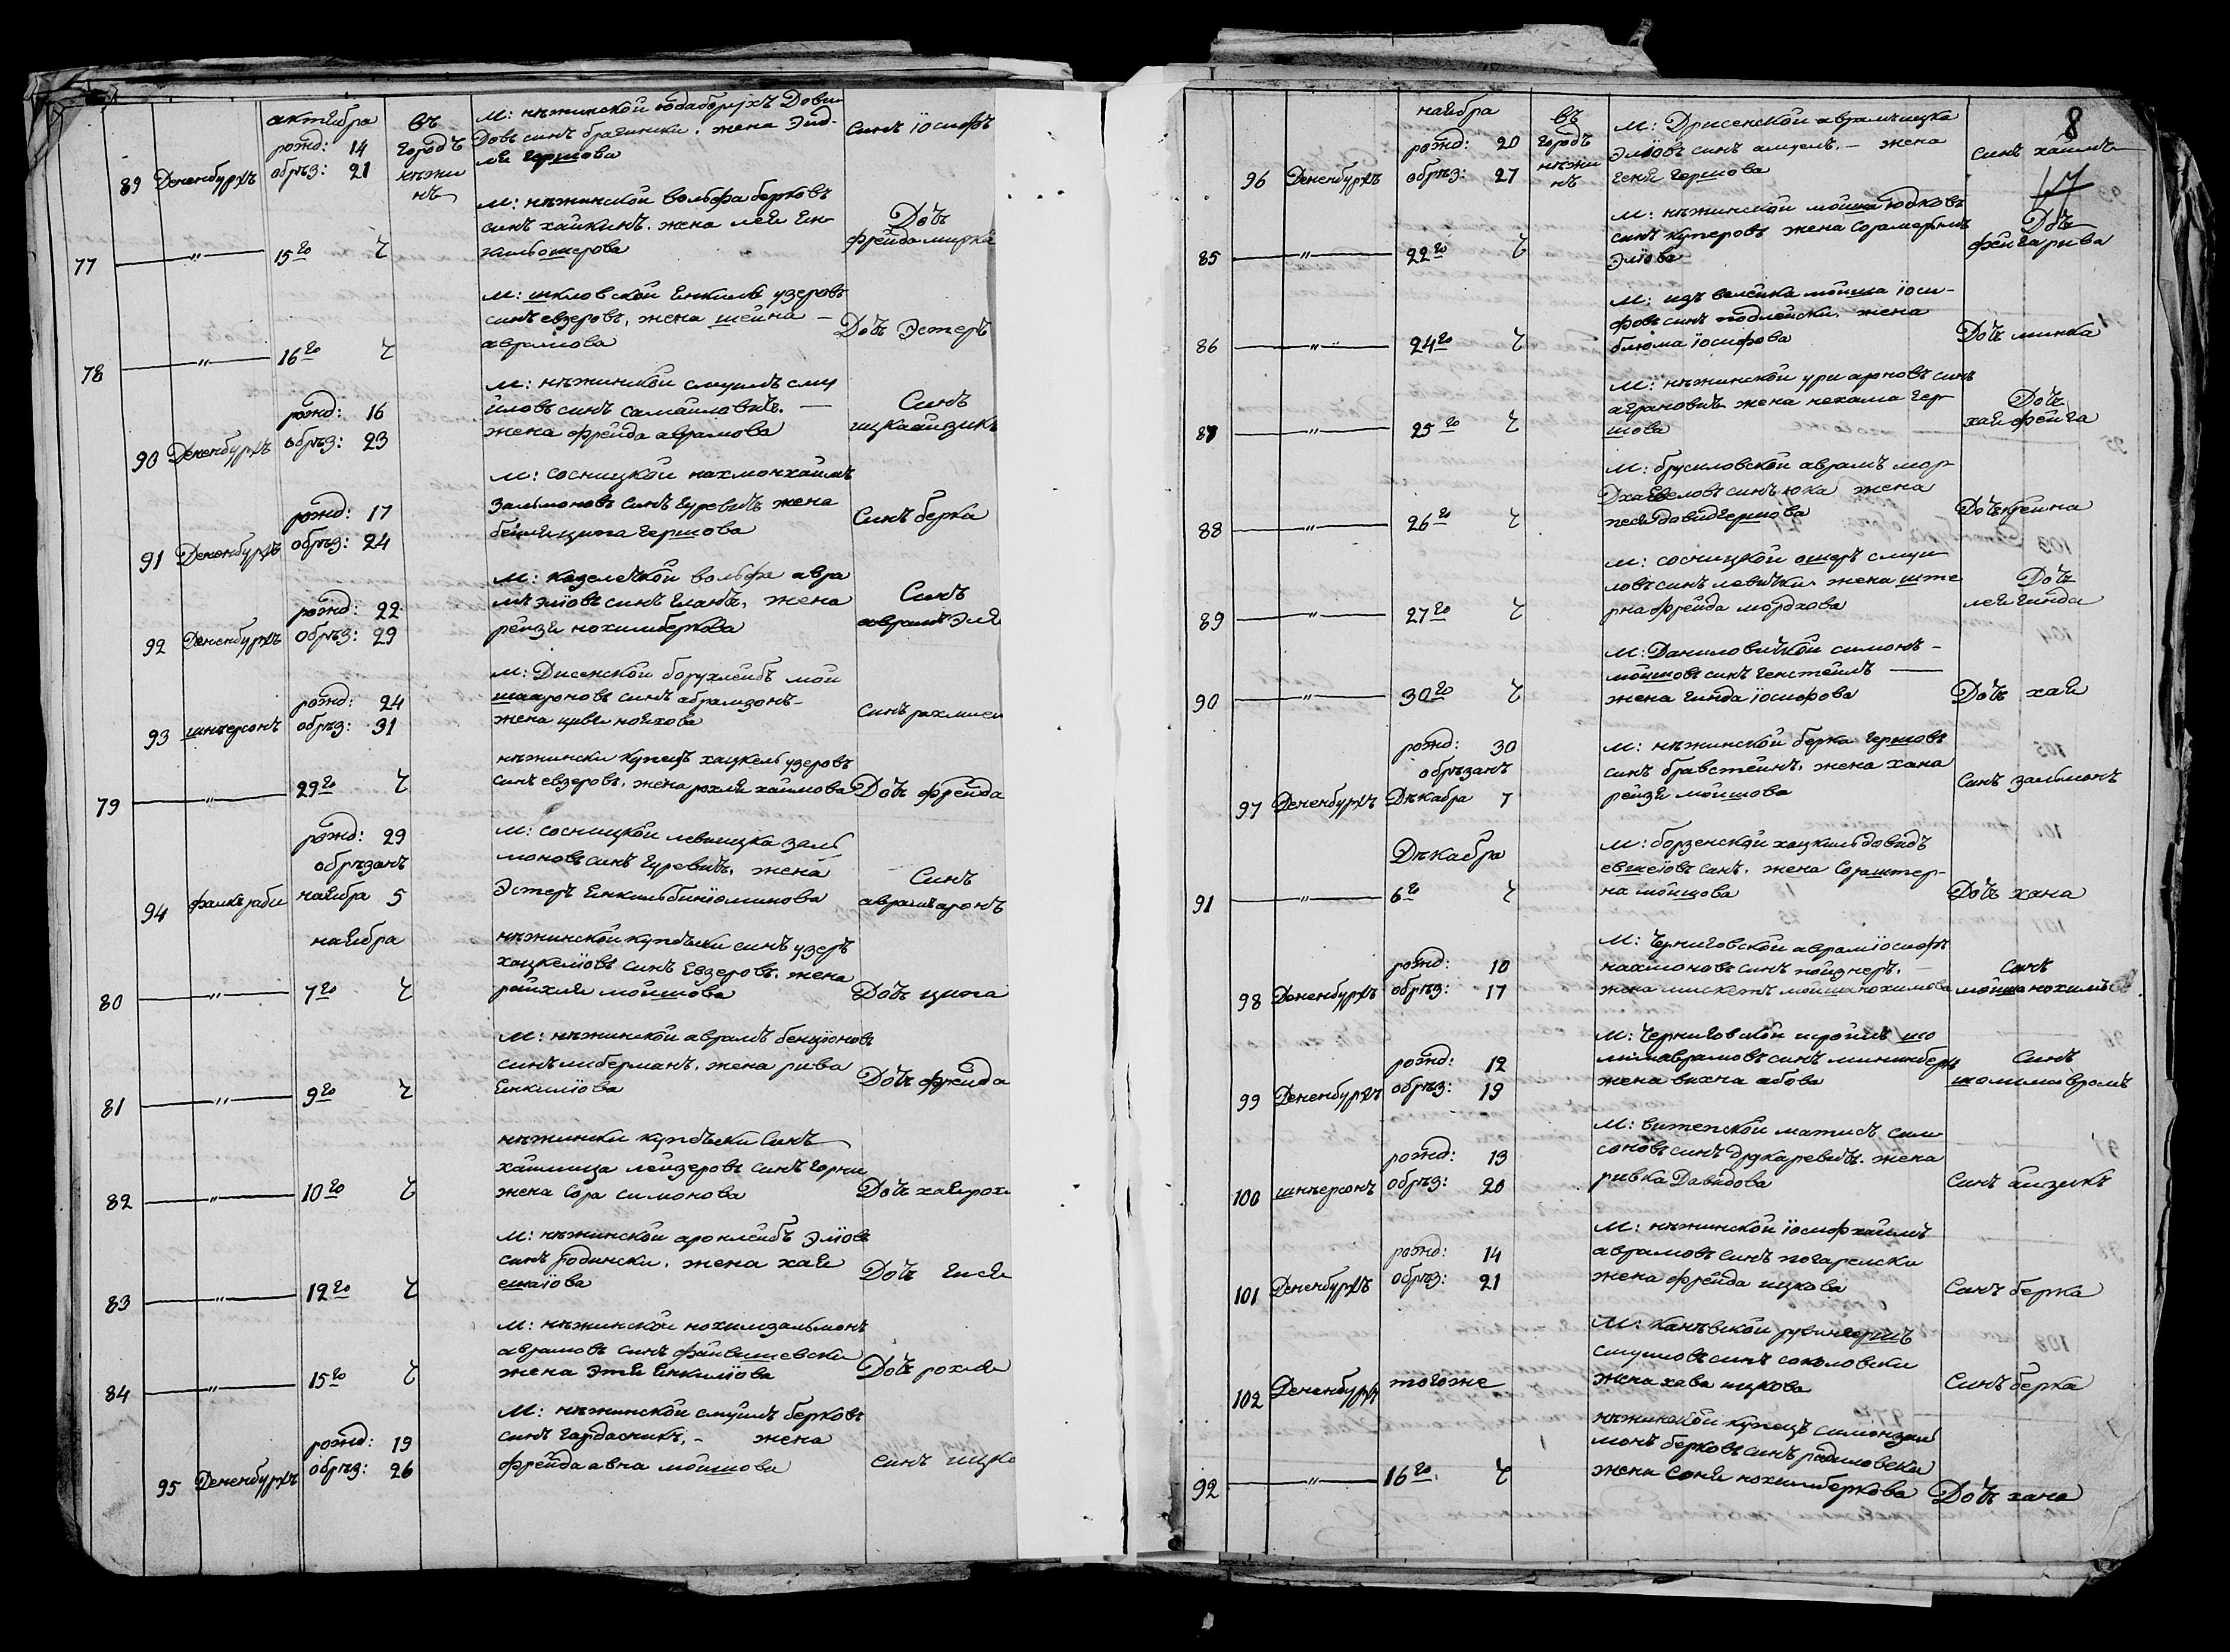 актября
рожд: 14
89 Дененбургъ обрѣз: 21
въ
городѣ
нѣжи
нѣ
М: нѣжинской юдаборухъ Дови
Довъ синъ брагински, жена Эйд-
ля гершова
Синъ іосифъ
77 — " — 15го
М: нѣжинской вольфа берковъ
синъ хайкинъ. жена лея Ен-
Дочъ
фрейдамирка
78 — " — 16го
М: шкловской Енкиль узеровъ
синъ евзеровъ, жена шейна —
аврамова
Дочъ Эстеръ
рожд: 16
90 Дененбургъ обрѣз: 23
М: нѣжинской смуилъ сму
иловъ синъ самайловичъ. —
жена фрейда аврамова
Синъ
ицкаайзикъ
рожд: 17
91 Дененбургъ обрѣз: 24
М: сосницкой нахмонхаимъ
залмоновъ синъ гуревичъ жена
бейляципа гершова
Синъ берка
рожд: 22
92 Дененбургъ обрѣз: 29
М: козелецкой вольфа авра
мъ эліовъ синъ гланъ, жена
рейзя нохимберкова
Синъ
аврамъ Эля
рожд: 24
93 шнѣерсонъ обрѣз: 31
М: Дисенской борухлейбъ мой
шаароновъ синъ абрамзонъ —
жена цивя нояхова
синъ рахмиел
79 — " — 29го
нѣжински купецъ хацкель узеровъ
синъ евзеровъ, жена рохля хаимова
Дочъ фрейда
рожд: 29
обрѣзанъ
94 фалкъ раби ноября 5
М: сосницкой левиицка зал
моновъ синъ гуревичъ, жена
Эстеръ Енкильбиніоминова
Синъ
аврамъаронъ
ноября
80 — " — 7го
нѣжинской купѣчски синъ узеръ
хацкеліовъ синъ Евзеровъ, жена
райхля мойшова
Дочъ ципа
81 — " — 9го
М: нѣжинской аврамъ бенціоновъ
синъ либерманъ, жена рива
Енкиліова
Дочъ фрейда
82 — " — 10го
нѣжински купѣчски синъ
лейзеровъ синъ горни
жена Сора симонова
Дочъ хаярох
83 — " — 12го
М: нѣжинской аронлейбъ Эліовъ
синъ родински, жена хая
ешаіова
Дочъ гися
84 — " — 15го
М: нѣжинской нохимзальмонъ
аврамовъ синъ файвишевски
жена Этя Енкиліова
Дочъ рохля
рожд: 19
95 Дененбургъ обрѣз: 26
М: нѣжинской смуилъ берковъ
синъ гардасникъ, — жена
фрейда авна мойшова
синъ ицко
8
ноября
рожд: 20
96 Дененбургъ обрѣз: 27
въ
городѣ
нѣжи
нѣ
М: Дрисенской аврамъицка
Эліовъ синъ — жена
геня гершова
синъ хаимъ
85 — " — 22го
М: нѣжинской мойша юдковъ
синъ куперовъ жена
Эліова
Дочъ
фейгарива
86 — " — 24го
М: изъ велейка мойша іоси-
фовъ синъ подлейски, жена
блюма іосифова
Дочъ минка
87 — " — 25го
М: нѣжинской ури ароновъ синъ
аграновичъ жена нехама гер
шова
Дочъ
хая фейга
88 — " — 26го
М: брусиловской аврамъ мор
синъ юка жена
песядовидгершова
Дочъ крейна
89 — " — 27го
М: сосницкой ошеръ смуи
ловъ синъ левички жена ште
рнафрейда мордхова
Дочъ
лея гинда
90 — " — 30го
М: Даниловичкой симонъ —
мойшовъ синъ генстейнъ —
жена гинда іосифова
Дочъ хая
рожд: 30
обрѣзанъ
97 Дененбургъ Дѣкабра 7
М: нѣжинской берка гершовъ
синъ бравстейнъ, жена хана
рейзя мойшова
Синъ залмонъ
Дѣкабра
91 — " — 6го
М: борзенской хацкильдовидъ
синъ. жена Сораштер-
на мойшова
Дочъ хана
рожд: 10
98 Дененбургъ обрѣз: 17
М: Черниговской аврамъіосифъ
нахмоновъ синъ пойзнеръ. —
жена мойшанохимова
Синъ
мойшанохимъ
рожд: 12
99 Дененбургъ обрѣз: 19
М: Черниговской шо
лимаврамовъ синъ мининбергъ
жена вихна абова
Синъ
шолимаврамъ
рожд: 13
100 шнѣерсонъ обрѣз: 20
М: витепской матисъ сим
соновъ синъ друкаревичъ. жена
ривка Давидова
Синъ айзикъ
рожд: 14
101 Дененбургъ обрѣз: 21
М: нѣжинской іосифхаимъ
аврамовъ синъ погарелски
жена фрейда ицкова
Синъ берка
102 Дененбургъ тогоже
М: Канѣвской рувингершъ
смуиловъ синъ соколовски
жена хава ицкова
Синъ берка
92 — " — 16го
нѣжинской купецъ симонзал
монъ берковъ синъ радиловски
жена Соня нохимберкова
Дочъ хана